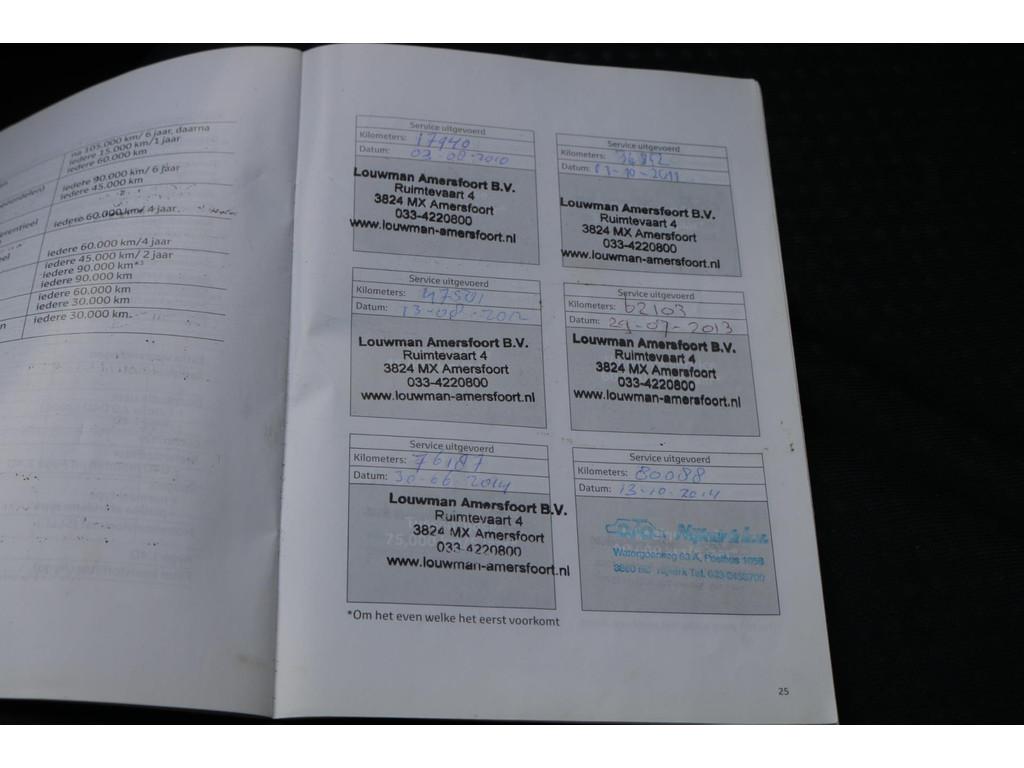 na 105.000 km/ 6 jaar, daarna
iedere 15.000 km/1 jaar
iedere 60.000 km
iedere 90.000 km/ 6 jaar
iedere 45.000 km
iedere 60.000 km/ 4 jaar.
iedere 60.000 km/4 jaar
iedere 45.000 km/ 2 jaar
iedere 90.000 km*³
iedere 90.000 km
iedere 60.000 km
iedere 30.000 km
iedere 30.000 km.
Service uitgevoerd
Kilometers: 17940
Datum: 03-08-2010
Louwman Amersfoort B.V.
Ruimtevaart 4
3824 MX Amersfoort
033-4220800
www.louwman-amersfoort.nl
Service uitgevoerd
Kilometers:
Datum:
Louwman Amersfoort B.V.
Ruimtevaart 4
3824 MX Amersfoort
033-4220800
www.louwman-amersfoort.nl
Service uitgevoerd
Kilometers: 47501
Datum: 13-08-2012
Louwman Amersfoort B.V.
Ruimtevaart 4
3824 MX Amersfoort
033-4220800
www.louwman-amersfoort.nl
Service uitgevoerd
Kilometers: 62103
Datum: 29-07-2013
Louwman Amersfoort B.V.
Ruimtevaart 4
3824 MX Amersfoort
033-4220800
www.louwman-amersfoort.nl
Service uitgevoerd
Kilometers: 76187
Datum: 30-06-2014
Louwman Amersfoort B.V.
Ruimtevaart 4
3824 MX Amersfoort
033-4220800
www.louwman-amersfoort.nl
Service uitgevoerd
Kilometers: 80088
Datum: 13-10-2014
Nijkerk b.v.
*Om het even welke het eerst voorkomt
25